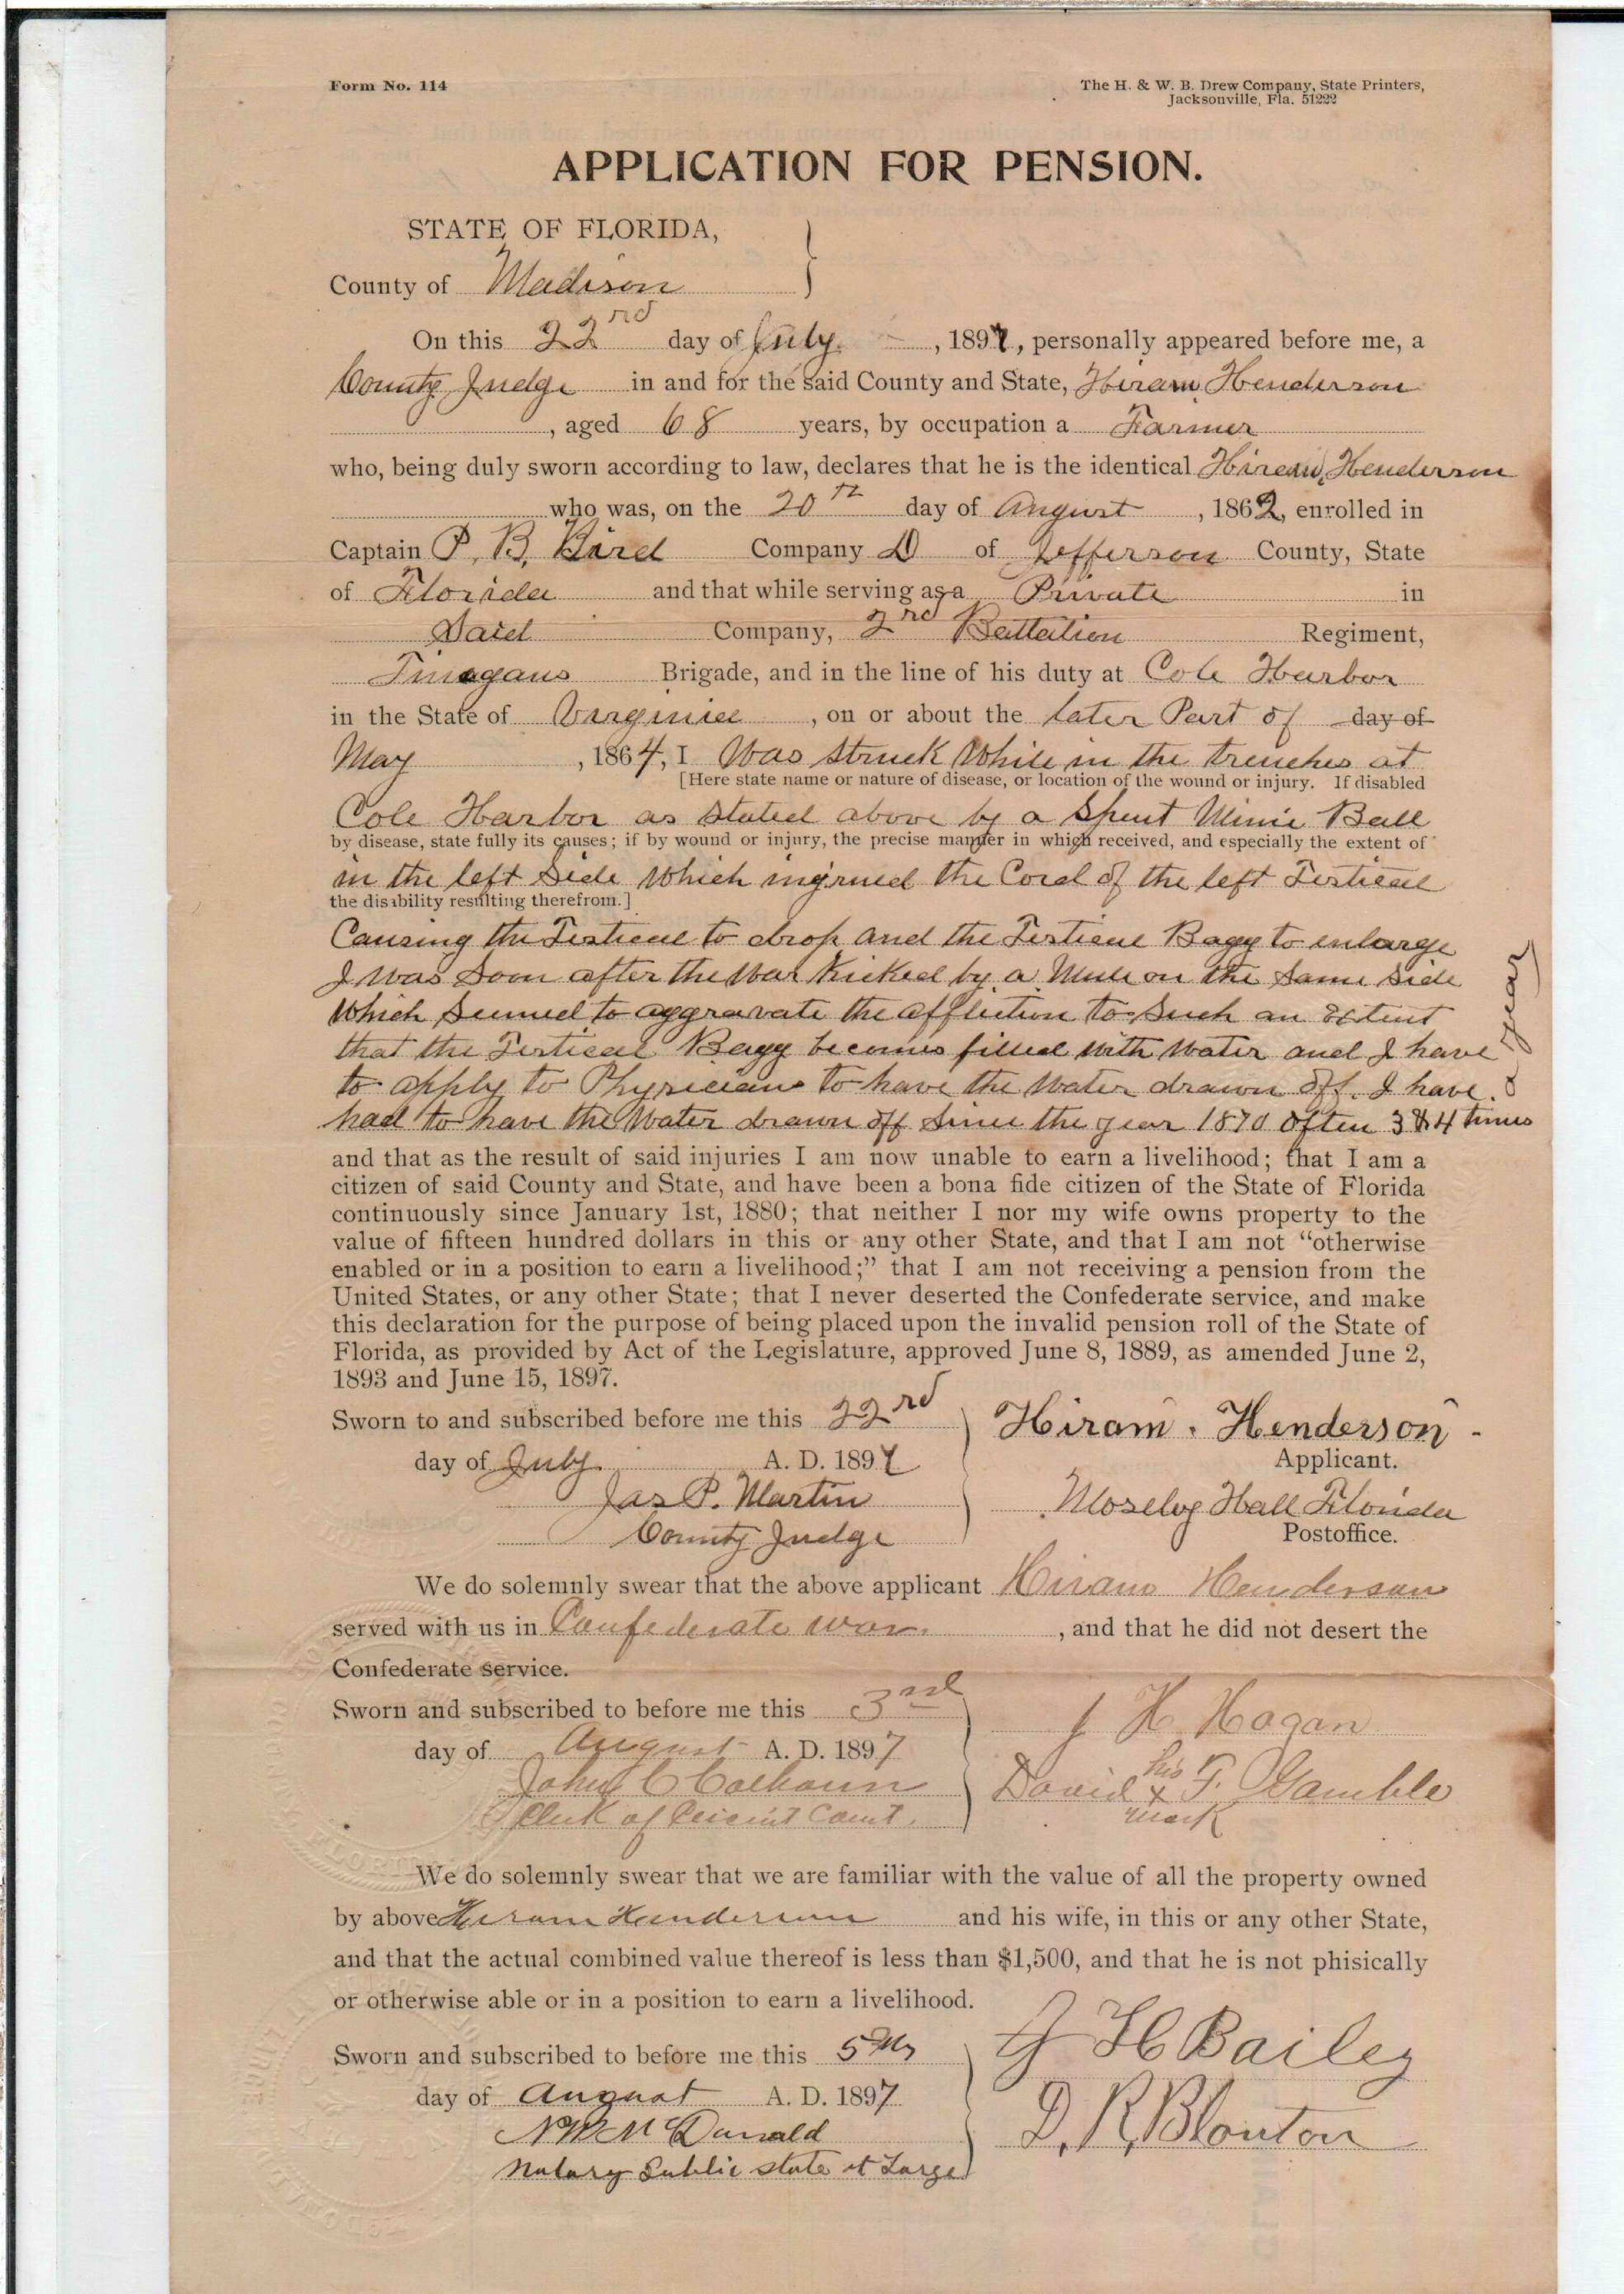 Form No. 114
The H. & W. B. Drew Company, State Printers,
Jacksonville, Fla. 51222
APPLICATION FOR PENSION.
STATE OF FLORIDA,
County of Madison
On this 22nd day of July, 1897, personally appeared before me, a
County Judge in and for the said County and State, Hiram Henderson
, aged 68 years, by occupation a Farmer
who, being duly sworn according to law, declares that he is the identical Hiram Henderson
who was, on the 20th day of August, 1862, enrolled in
Captain P. B. Bird Company D of Jefferson County, State
of Florida and that while serving as a Private in
Said Company, 2nd Battalion Regiment,
Finegans Brigade, and in the line of his duty at Cole Harbor
in the State of Virginia, on or about the later Part of day of
May, 1864, I Was struck While in the trenches at
[Here state name or nature of disease, or location of the wound or injury. If disabled
Cole Harbor as stated above by a Spent Minie Ball
by disease, state fully its causes; if by wound or injury, the precise manner in which received, and especially the extent of
in the left Side Which injured the Cord of the left Testical
the disability resulting therefrom.]
Causing the Testical to drop and the Testical Bagg to enlarge
I was Soon after the War Kicked by a Mule on the Same Side
Which Seemed to aggravate the affliction to Such an Extent
that the Testical Bagg becomes filled with Water and I have
to apply to Physicians to have the Water drawn off. I have
had to have the Water drawn off Since the year 1870 often 3 & 4 times
a year
and that as the result of said injuries I am now unable to earn a livelihood; that I am a
citizen of said County and State, and have been a bona fide citizen of the State of Florida
continuously since January 1st, 1880; that neither I nor my wife owns property to the
value of fifteen hundred dollars in this or any other State, and that I am not "otherwise
enabled or in a position to earn a livelihood;" that I am not receiving a pension from the
United States, or any other State; that I never deserted the Confederate service, and make
this declaration for the purpose of being placed upon the invalid pension roll of the State of
Florida, as provided by Act of the Legislature, approved June 8, 1889, as amended June 2,
1893 and June 15, 1897.
Sworn to and subscribed before me this 22nd
day of July A. D. 1897
Jas P. Martin
County Judge
Hiram. Henderson
Applicant.
Mosely Hall Florida
Postoffice.
We do solemnly swear that the above applicant Hiram Henderson
served with us in Confederate war., and that he did not desert the
Confederate service.
Sworn and subscribed to before me this 3rd
day of August A. D. 1897
John C Calhoun
Clerk of Circuit Court.
J H Hagan
David his x mark F. Gamble
We do solemnly swear that we are familiar with the value of all the property owned
by above Hiram Henderson and his wife, in this or any other State,
and that the actual combined value thereof is less than $1,500, and that he is not phisically
or otherwise able or in a position to earn a livelihood.
Sworn and subscribed to before me this 5th
day of August A. D. 1897
N W McDonald
Notary Public state at Large
J H Bailey
D. R. Blanton